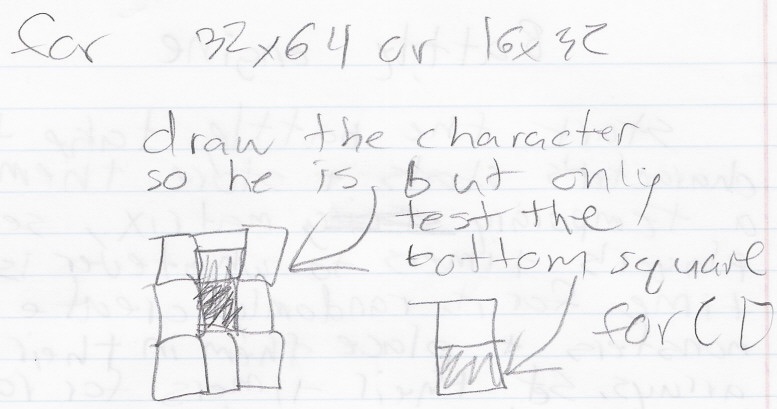 for 32x64 or 16x32
draw the character
so he is, but only
test the
bottom square
for CD